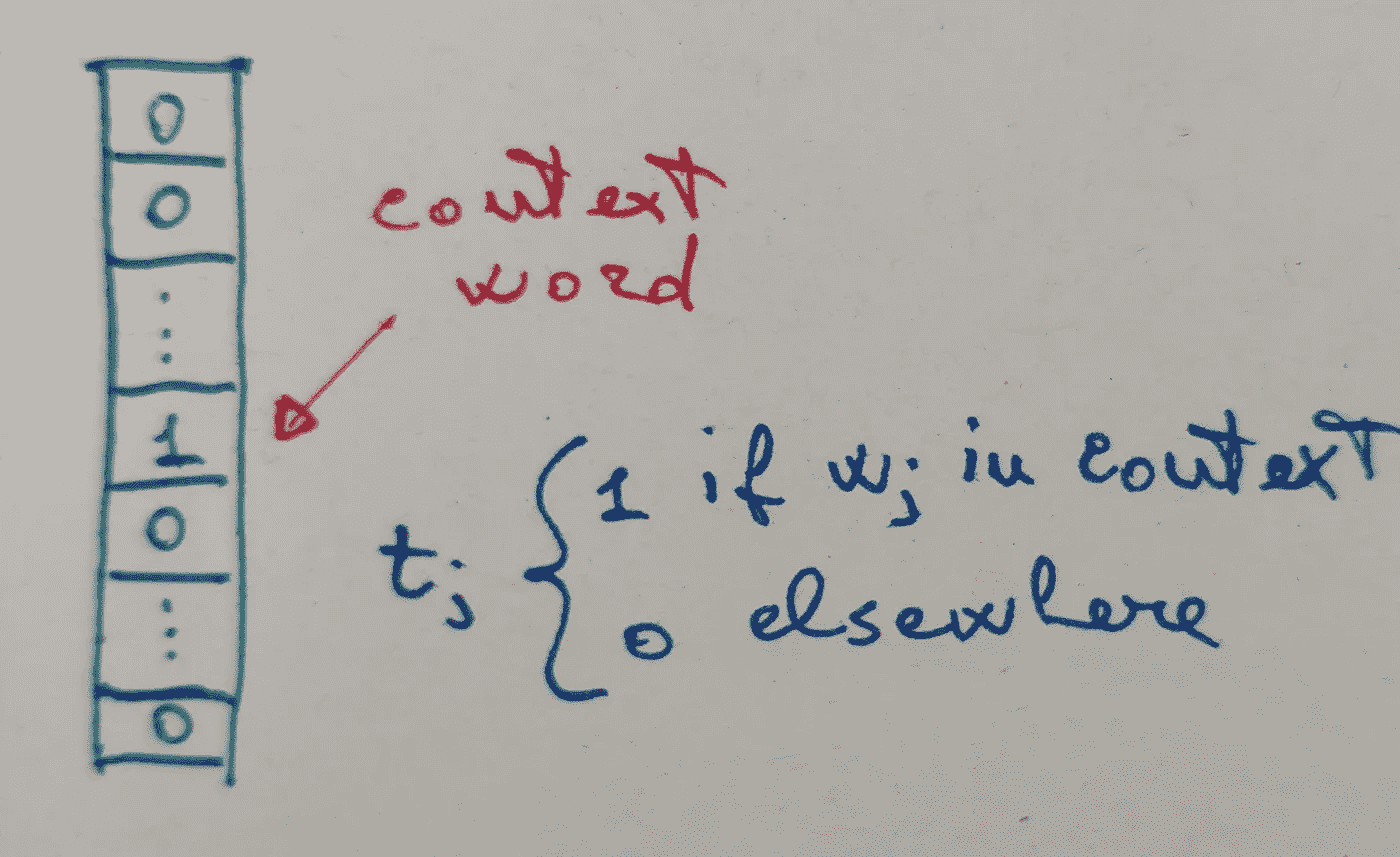 0
0
⋮
1
0
⋮
0
context
word
tj { 1 if wj in context
0 elsewhere